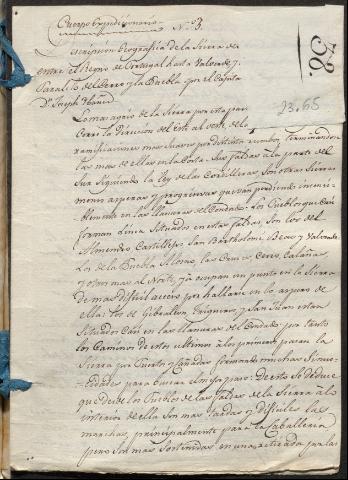 Cuerpo Expedicionario
N.º 3.
38.
23.65
Descripcion Geografica de la Sierra de
entre el Reyno de Portugal hasta Valverde y
Paralelo del Cerro y la Puebla por el Capitan
Dn. Joseph Ibañez
Lo mas agrio de la Sierra por esta par
corre la direccion del este al oeste, de la
ramificaciones mas suaves por distintos rumbos terminandose
las mas de ellas en la Costa. Sus faldas a la parte del
Sur siguiendo la ley de las Cordilleras son otras sierras
menos asperas y progresivas que van perdiendo insensi
blemente en las llanuras del Condado. Los Pueblos que casi
forman linea situados en estas faldas son los del
Almendro Castillejos San Bartholomé Beas y Valverde
Los de la Puebla Alosno las Cruces Cerro Calañas
y otros mas al Norte, ya ocupan un punto en la Sierra
de mas dificil acceso por hallarse en lo aspero de
ella: los de Gibraleon Trigueros y San Juan estan
situados casi en las llanuras del Condado por tanto
los caminos de estos ultimos a los primeros pasan la
Sierra por Puertos y Cañadas formando muchas sinuo
sidades para buscar el mejor paso: De esto se deduce
que desde los Pueblos de las faldas de la Sierra a lo
interior de ella son mas tardas y dificiles las
marchas, principalmente para la Caballeria
pero son mas sostenidas en una retirada por las